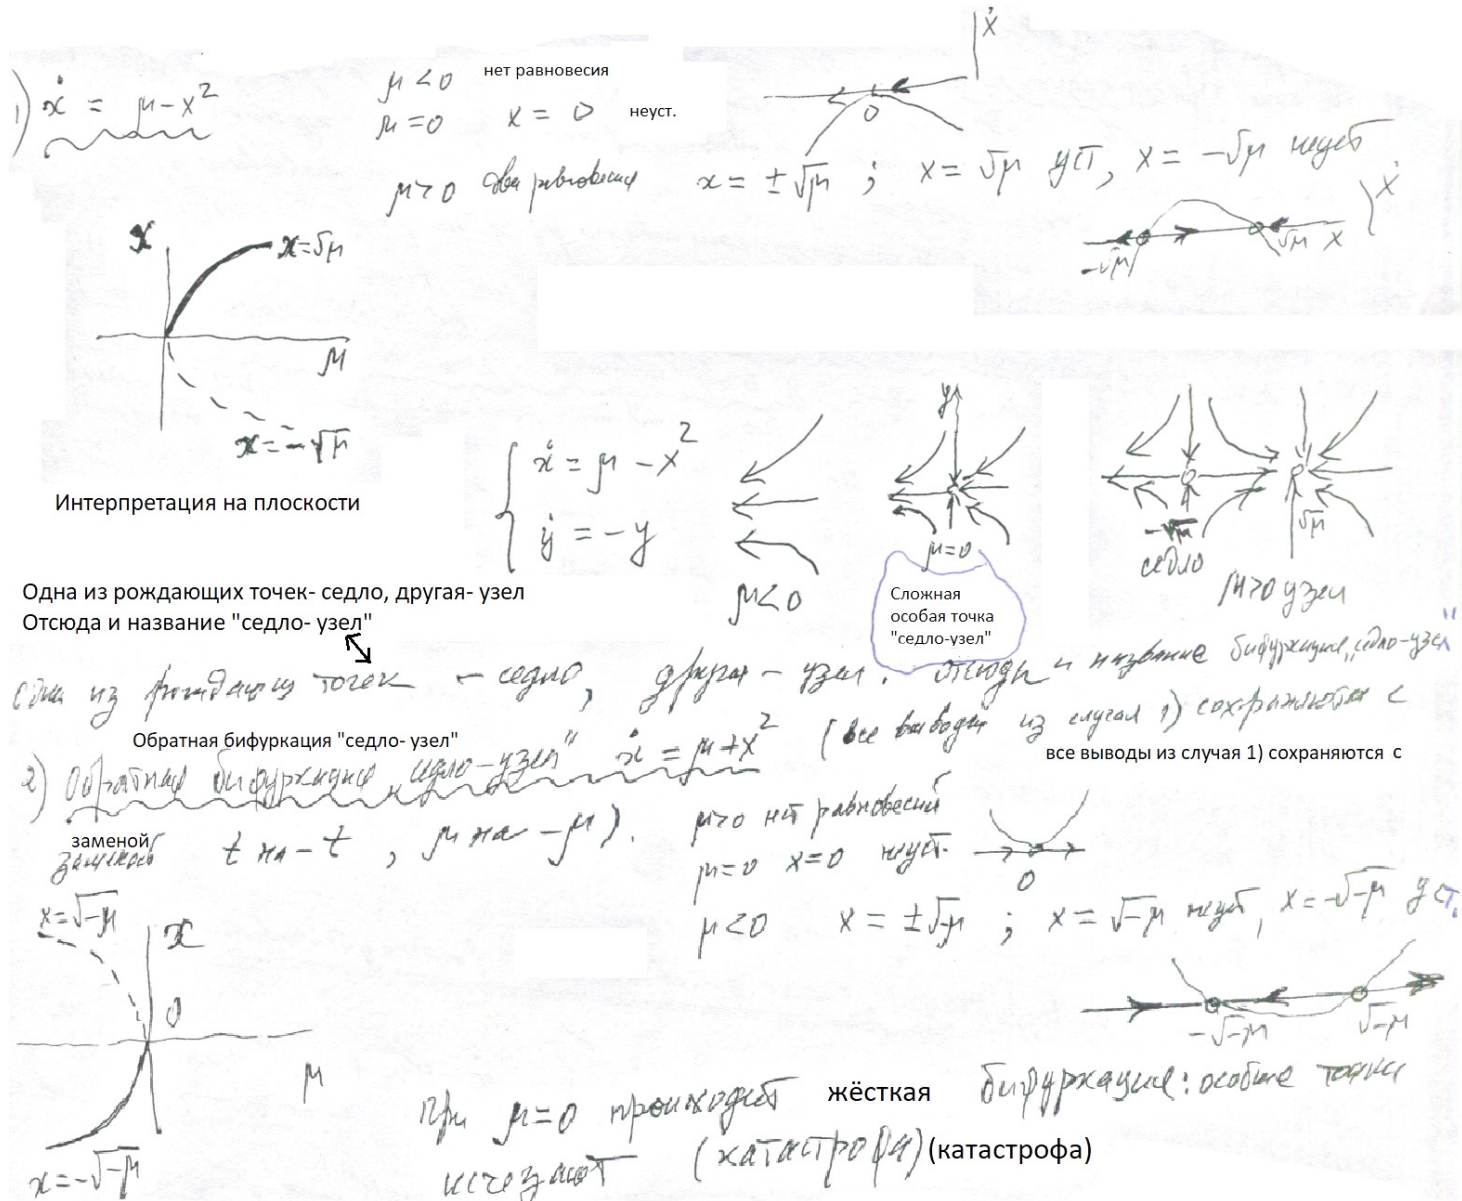 1) ẋ = μ - x²
μ < 0 нет равновесия
μ = 0 x = 0 неуст.
μ > 0 два равновесия x = ±√μ ; x = √μ уст, x = -√μ неуст
ẋ
0
ẋ
-√μ √μ x
x
x = √μ
μ
x = -√μ
Интерпретация на плоскости
ẋ = μ - x²
ẏ = -y
μ < 0
y
μ = 0
Сложная
особая точка
"седло-узел"
-√μ
седло
√μ
μ > 0 узел
Одна из рождающих точек- седло, другая- узел
Отсюда и название "седло- узел"
одна из рождающих точек - седло, другая - узел. отсюда и название бифуркации „седло-узел"
Обратная бифуркация "седло- узел"
2) Обратная бифуркация „седло-узел" ẋ = μ + x² (все выводы из случая 1) сохраняются с
все выводы из случая 1) сохраняются с
заменой
заменой t на -t , μ на -μ ).
μ > 0 нет равновесий
μ = 0 x = 0 неуст.
0
μ < 0 x = ±√-μ ; x = √-μ неуст, x = -√-μ уст.
-√-μ √-μ
x = √-μ
x
0
μ
x = -√-μ
При μ = 0 происходит жёсткая бифуркация: особые точки
исчезают (катастрофа) (катастрофа)